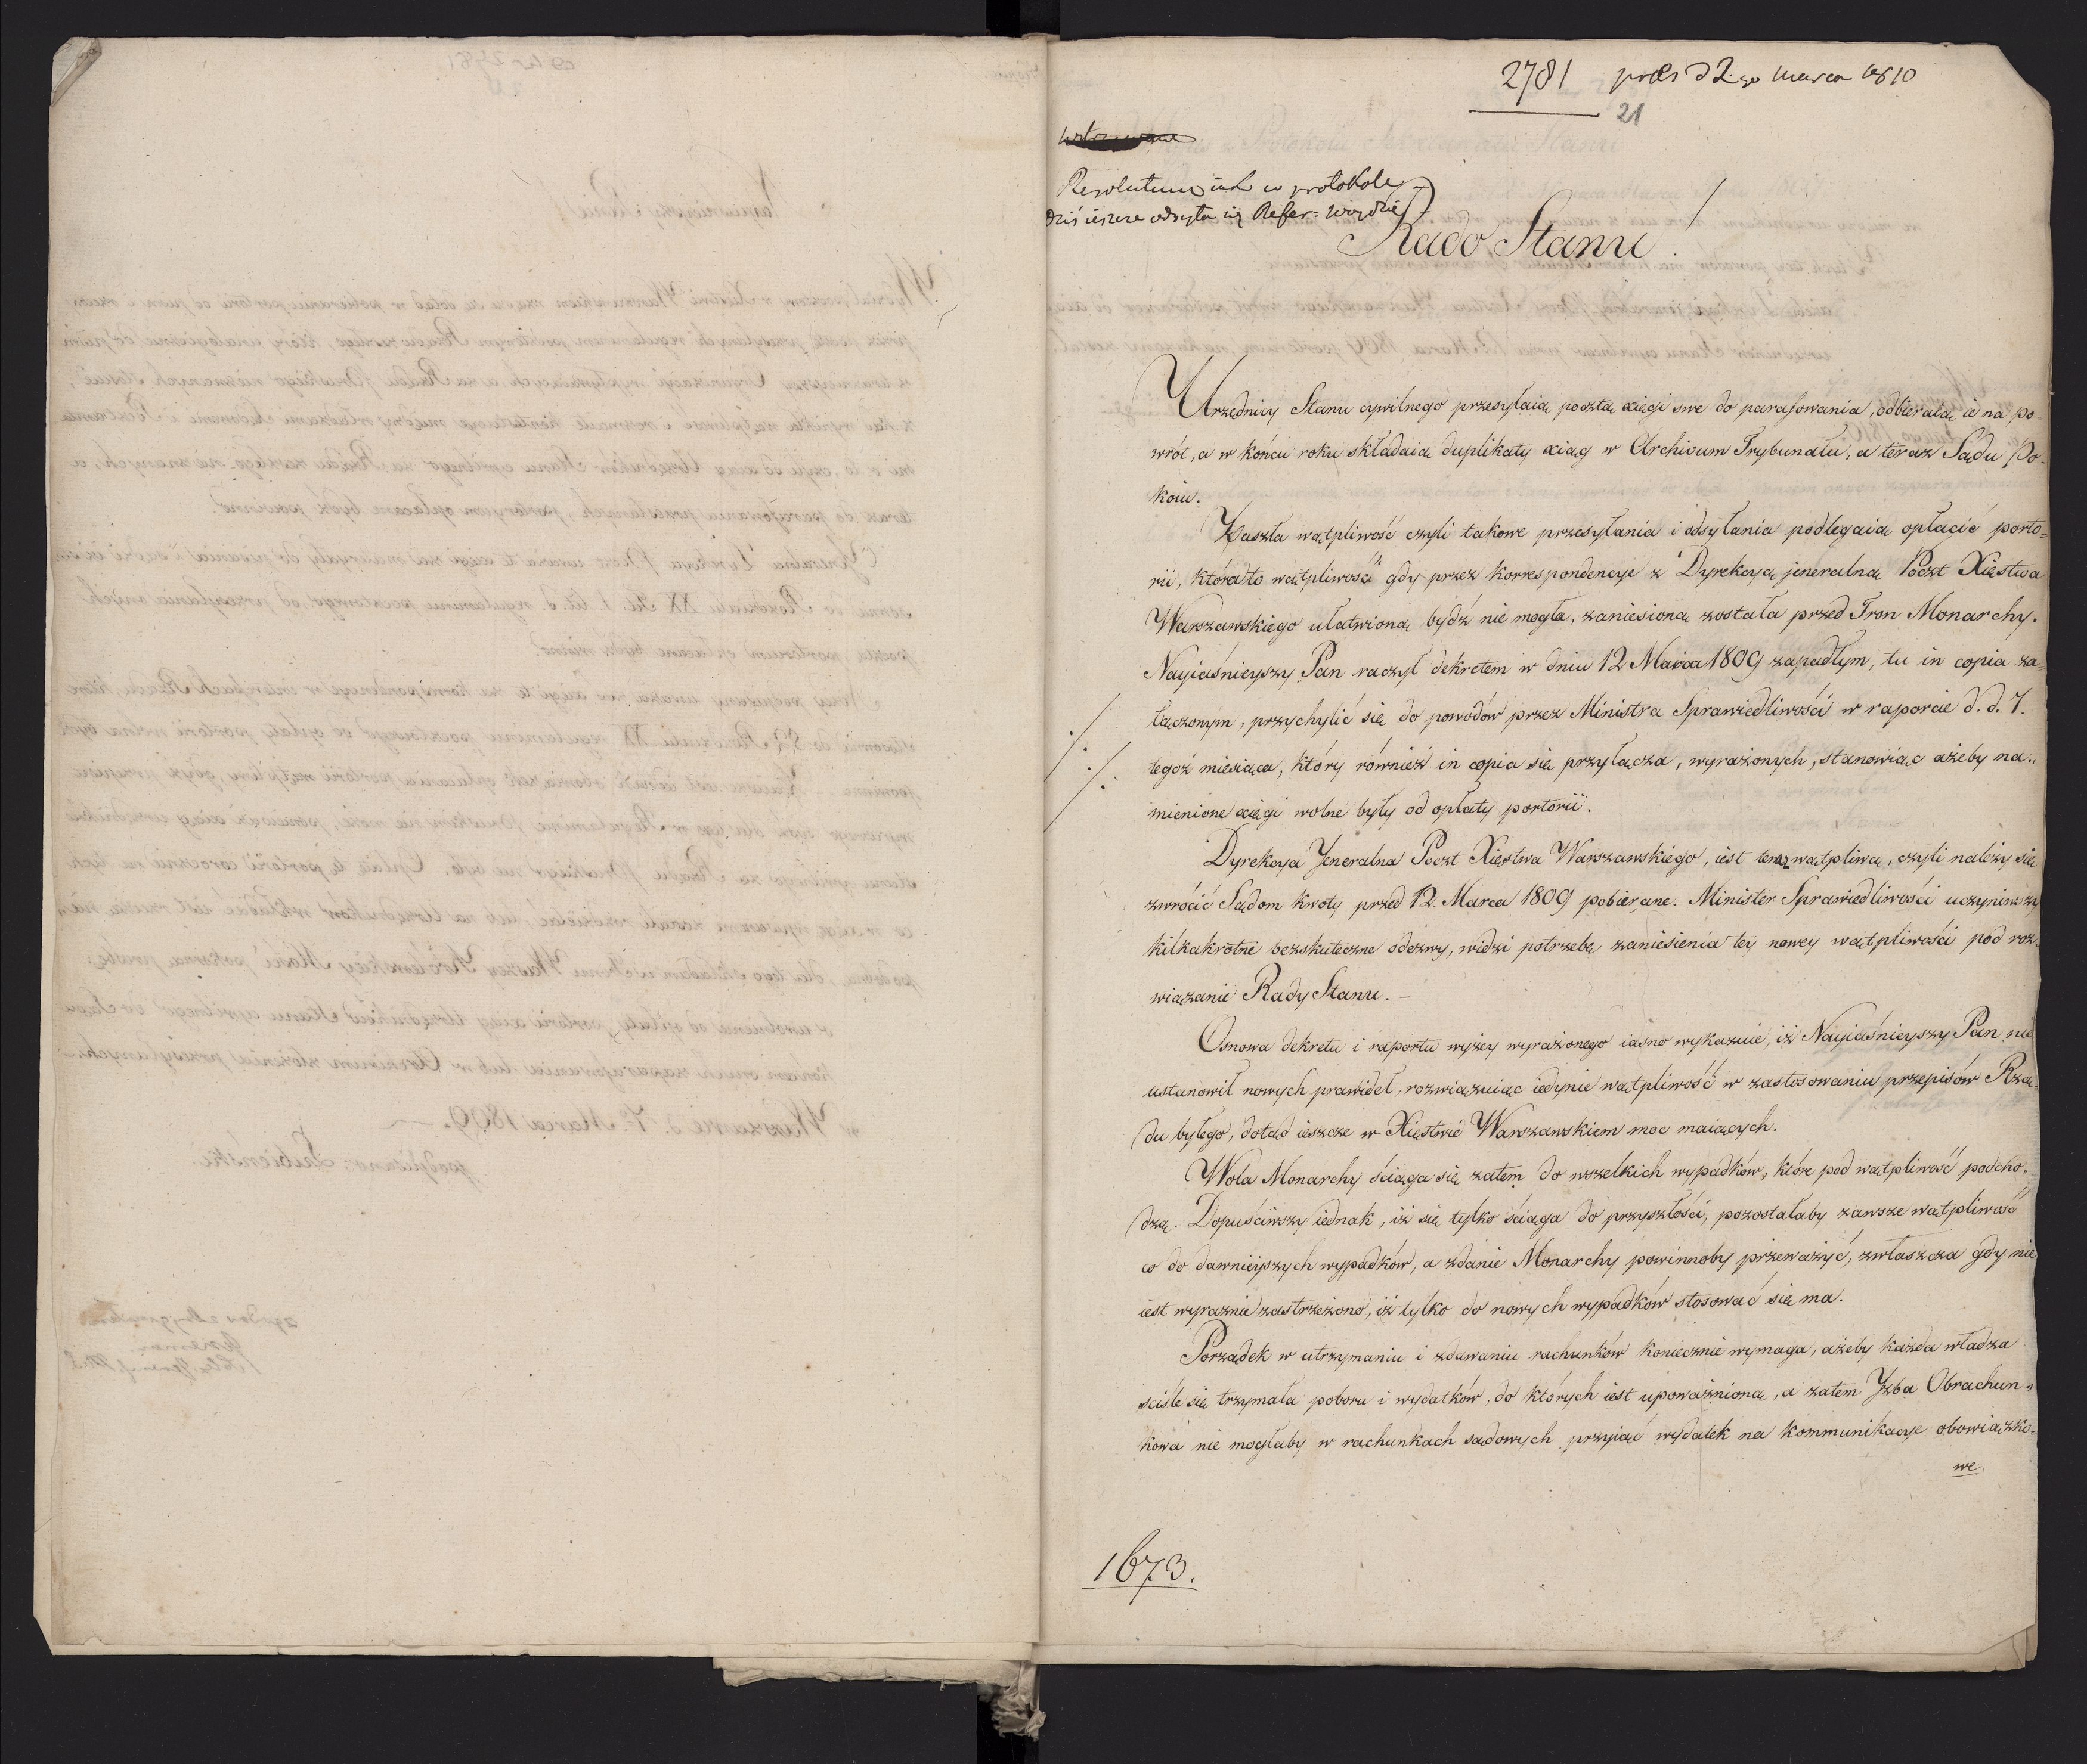 2781 praes d 2go marca 1810
21
Resolutum iak w protokole
dziś ieszcze odsyła się Refer: Woydzie
Rado Stanu!
Urzędnicy Stanu cywilnego przesyłaią pocztą xięgi swe do parafowania, odbieraią ie na po-
wrót, a w końcu roku składaią duplikaty xiąg w Archivum Trybunału, a teraz Sądu Po-
koiu.
Zaszła wątpliwość czyli takowe przesyłania i odsyłania podlegaią opłacie porto-
rii, która to wątpliwość gdy przez korrespondencye z Dyrekcyą jeneralną Poczt Xięstwa
Warszawskiego ułatwioną bydź nie mogła, zaniesioną została przed Tron Monarchy.
Nayiaśnieyszy Pan raczył dekretem w dniu 12 Marca 1809 zapadłym, tu in copia za-
łączonym, przychylić się do powodów przez Ministra Sprawiedliwości w raporcie d. d. 7.
tegoż miesiąca, który również in copia się przyłącza, wyrażonych, stanowiąc ażeby na-
mienione xięgi wolne były od opłaty portorii.
Dyrekcya Jeneralna Poczt Xięstwa Warszawskiego, iest teraz wątpliwą, czyli należy się
zwrócić Sądom kwoty przed 12. Marca 1809 pobierane. Minister Sprawiedliwości uczyniwszy
kilkakrotne bezskuteczne odezwy, widzi potrzebę zaniesienia tey nowey wątpliwości pod roz-
wiązanie Rady Stanu. -
Osnowa dekretu i raportu wyżey wyrażonego iasno wykazuie, iż Nayiaśnieyszy Pan nie
ustanowił nowych prawideł, rozwiązuiąc iedynie wątpliwość w zastosowaniu przepisów Rzą-
du byłego, dotąd ieszcze w Xięstwie Warszawskiem moc maiących.
Wola Monarchy ściąga się zatem do wszelkich wypadków, które pod wątpliwość podcho-
dzą. Dopuściwszy iednak, iż się tylko ściąga do przyszłości, pozostałaby zawsze wątpliwość
co do dawnieyszych wypadków, a zdanie Monarchy powinnoby przeważyć, zwłaszcza gdy nie
iest wyraźnie zastrzeżono, iż tylko do nowych wypadków stosować się ma.
Porządek w utrzymaniu i zdawaniu rachunków koniecznie wymaga, ażeby każda władza
ściśle się trzymała poboru i wydatków, do których iest upoważnioną, a zatem Yzba Obrachun-
kowa nie mogłaby w rachunkach sądowych przyiąć wydatek na kommunikacye obowiązko-
we
1673.